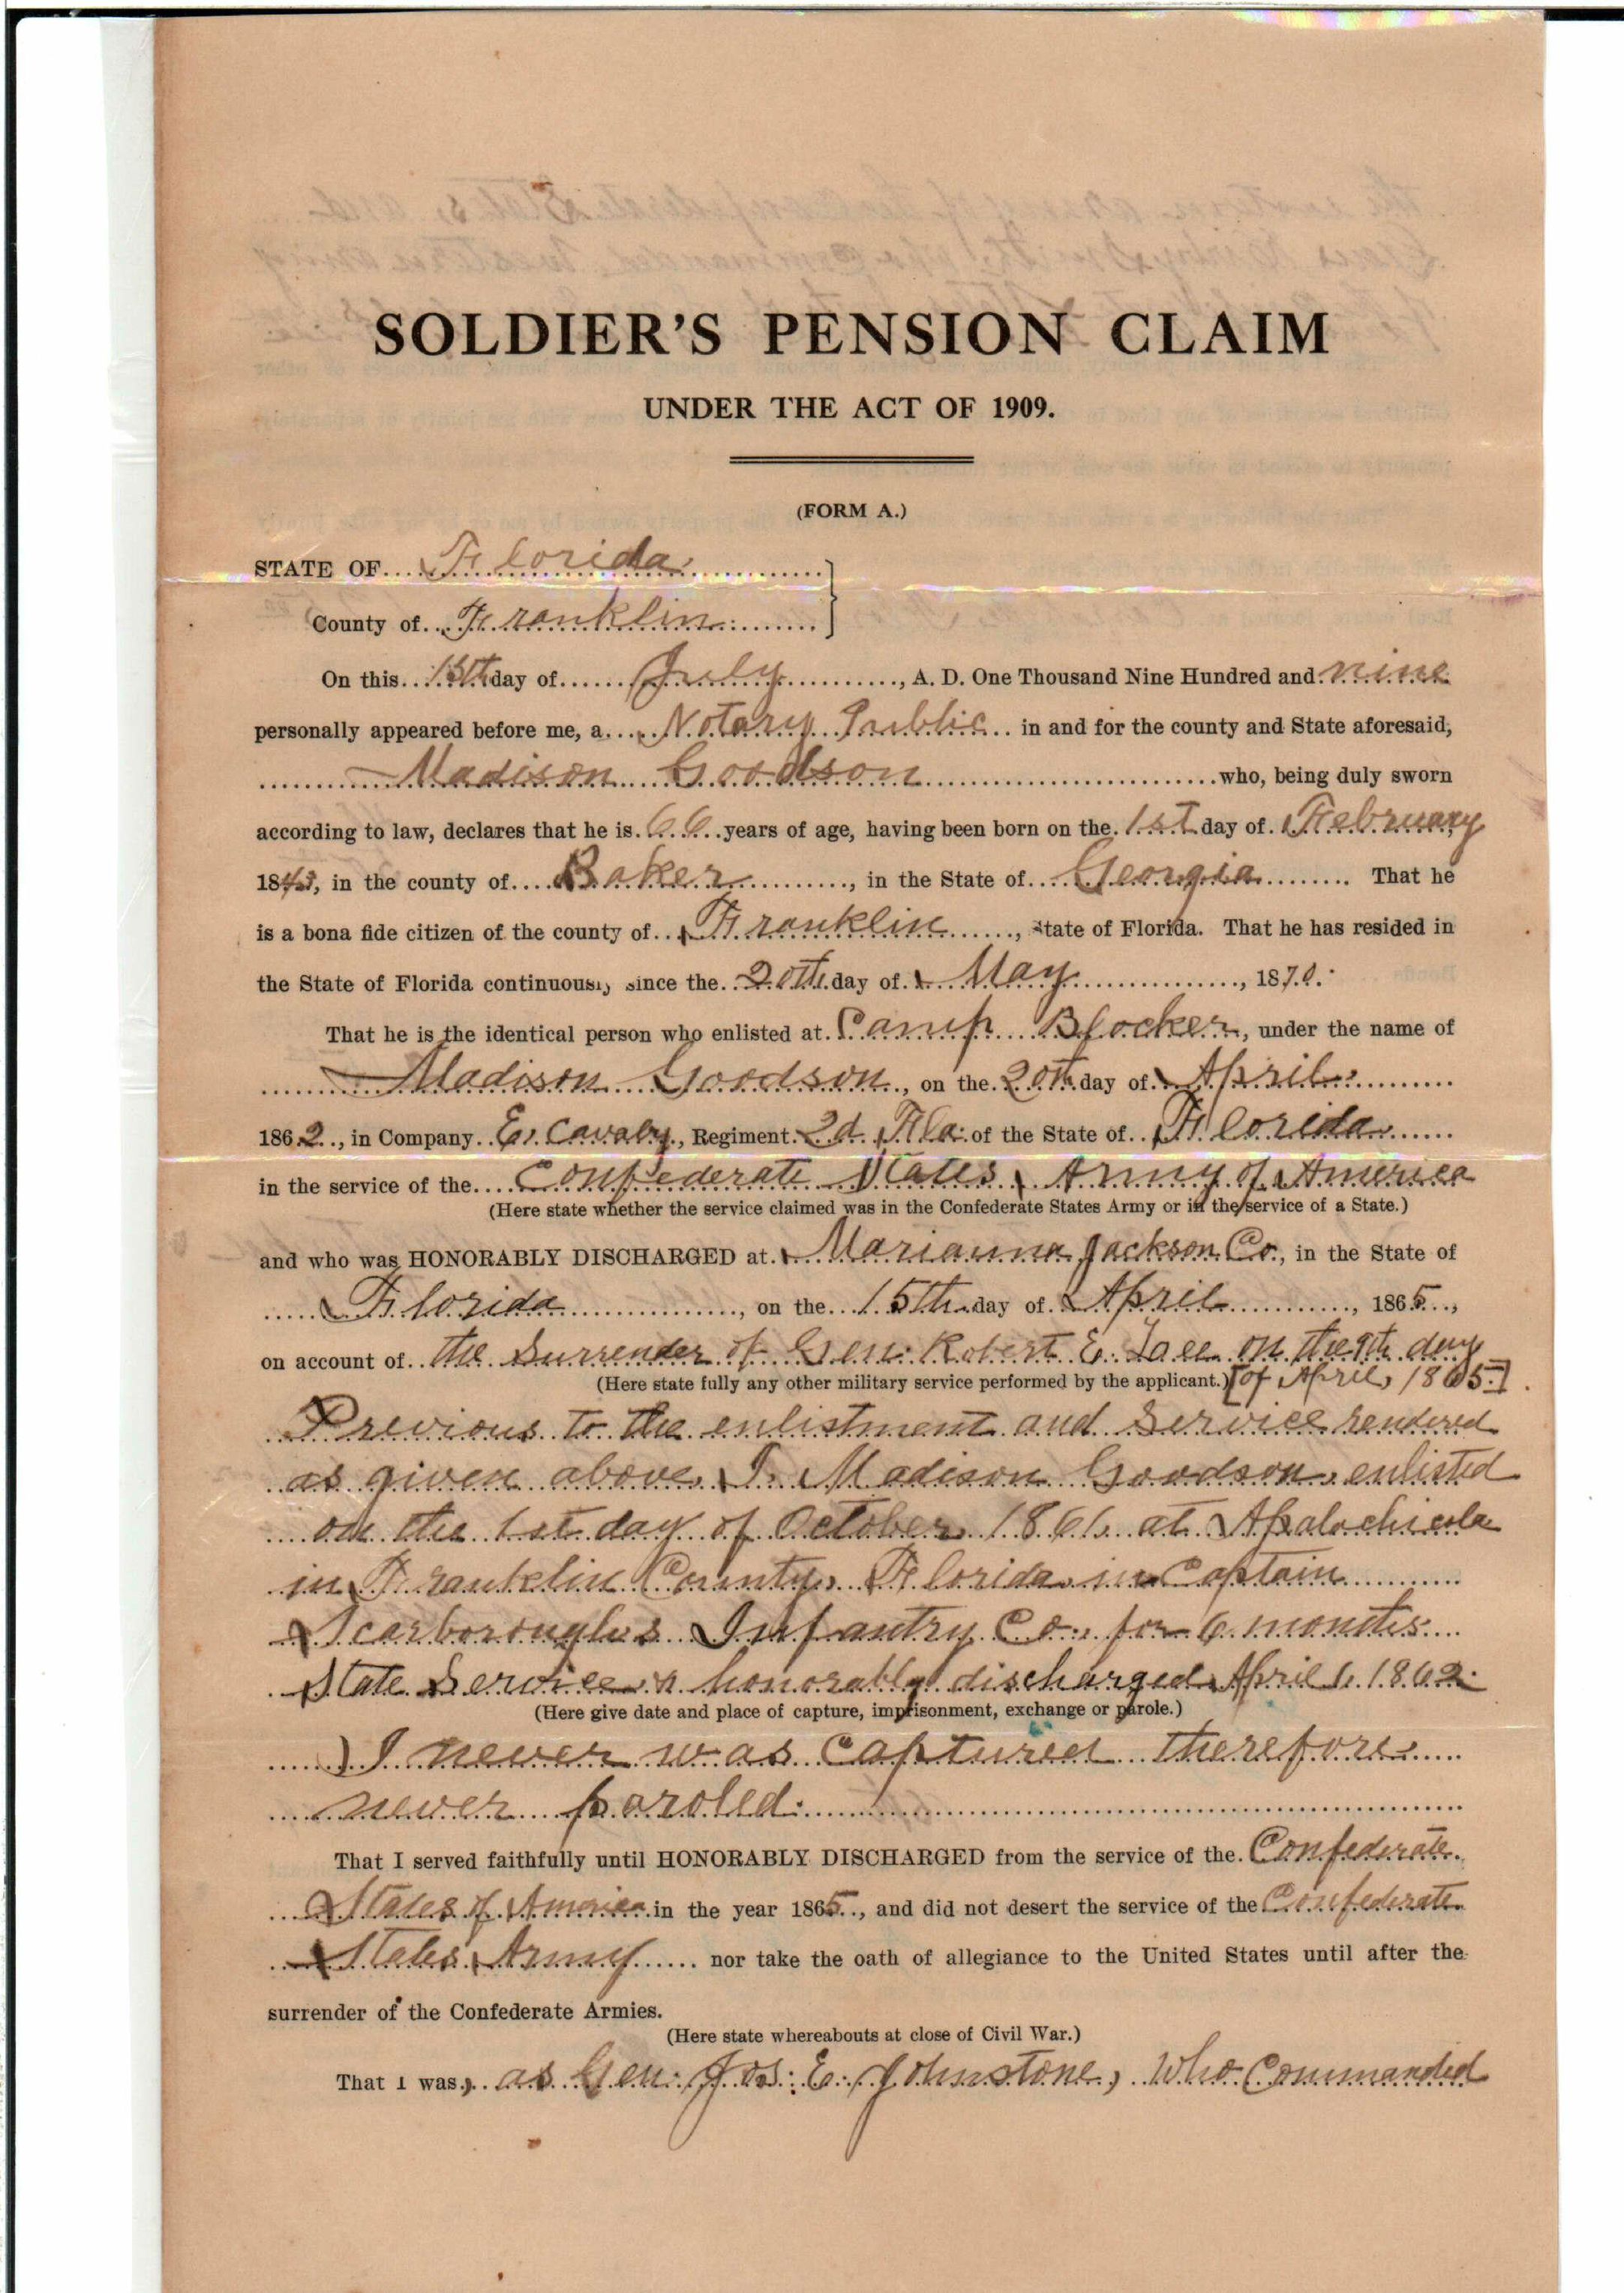 SOLDIER'S PENSION CLAIM
UNDER THE ACT OF 1909.
(FORM A.)
STATE OF Florida
County of Franklin
On this 15th day of July, A. D. One Thousand Nine Hundred and nine
personally appeared before me, a Notary Public in and for the county and State aforesaid,
Madison Goodson who, being duly sworn
according to law, declares that he is 66 years of age, having been born on the 1st day of February
1843, in the county of Baker, in the State of Georgia That he
is a bona fide citizen of the county of Franklin, State of Florida. That he has resided in
the State of Florida continuously since the 20th day of May, 1870.
That he is the identical person who enlisted at Camp Blocker, under the name of
Madison Goodson, on the 20th day of April
1862, in Company E. Cavalry, Regiment 2d Fla. of the State of Florida
in the service of the Confederate States Army of America
(Here state whether the service claimed was in the Confederate States Army or in the service of a State.)
and who was HONORABLY DISCHARGED at Marianna Jackson Co., in the State of
Florida, on the 15th day of April, 1865,
on account of the Surrender of Gen. Robert E. Lee on the 9th day
(Here state fully any other military service performed by the applicant.) [of April, 1865.]
Previous to the enlistment and Service rendered
as given above, I, Madison Goodson, enlisted
on the 1st day of October 1861, at Apalachicola
in Franklin County, Florida, in Captain
Scarborough's Infantry Co. for 6 months
State Service & honorably discharged April 1, 1862.
(Here give date and place of capture, imprisonment, exchange or parole.)
I never was captured therefore
never paroled.
That I served faithfully until HONORABLY DISCHARGED from the service of the Confederate
States of America in the year 1865, and did not desert the service of the Confederate
States Army nor take the oath of allegiance to the United States until after the
surrender of the Confederate Armies.
(Here state whereabouts at close of Civil War.)
That I was, as Gen. Jos. E. Johnstone, who Commanded